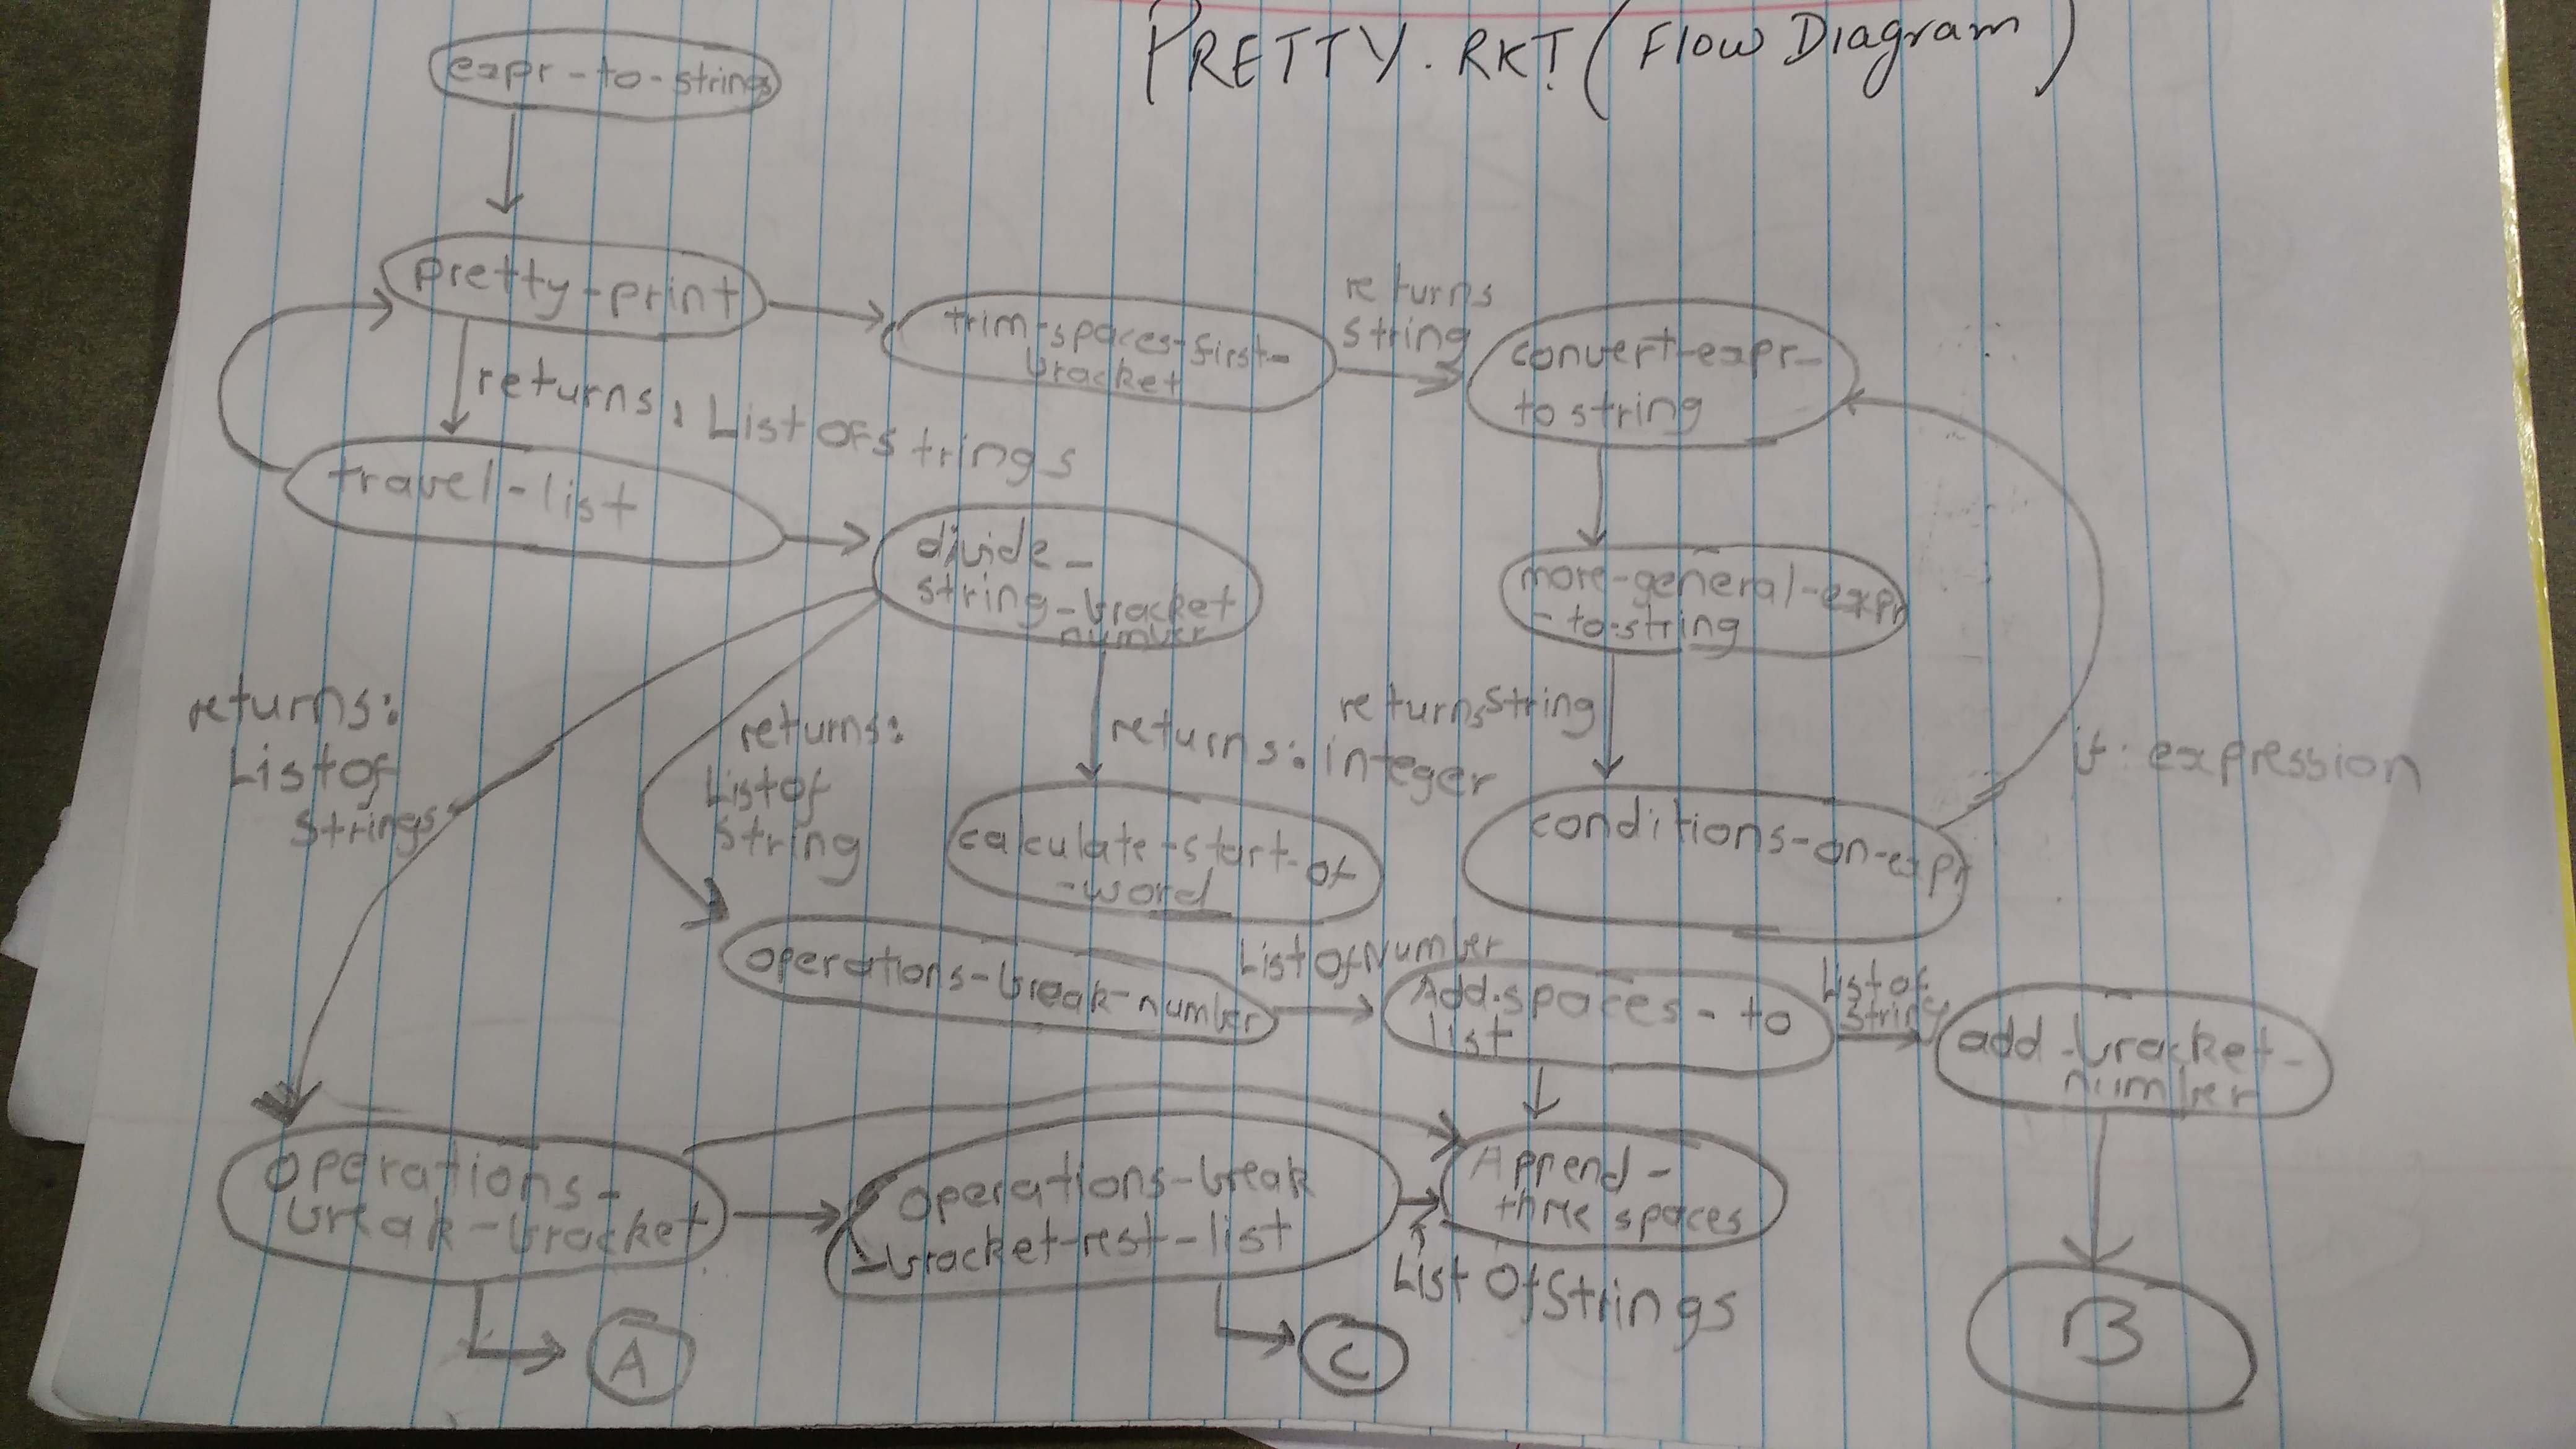 PRETTY.RKT (Flow Diagram)
expr-to-strings
pretty-print
trim-spaces-first-
bracket
returns
string
convert-expr-
to string
returns: ListOfStrings
travel-list
divide-
string-bracket
number
more-general-expr
-to-string
returns:
Listof
Strings
returns:
Listof
String
returns: integer
returns String
if: expression
calculate-start-of
-word
conditions-on-expr
operations-break-number
ListOfNumber
Add-spaces-to
list
Listof
String
add-bracket-
number
operations-
break-bracket
operations-break
-bracket-rest-list
Append-
three spaces
List OfStrings
A
C
B